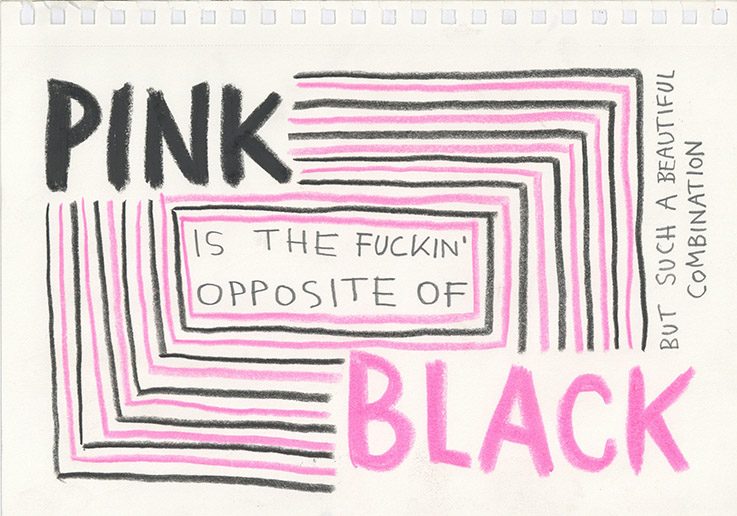 PINK
IS THE FUCKIN'
OPPOSITE OF
BLACK
BUT SUCH A BEAUTIFUL
COMBINATION